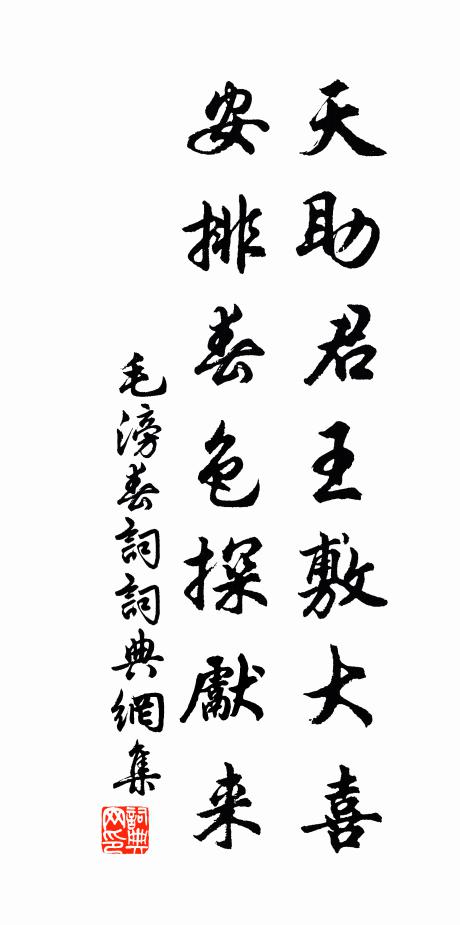 天助君王敷大喜
安排春色探獻来
毛滂春詞詞典網集
詞典
网印